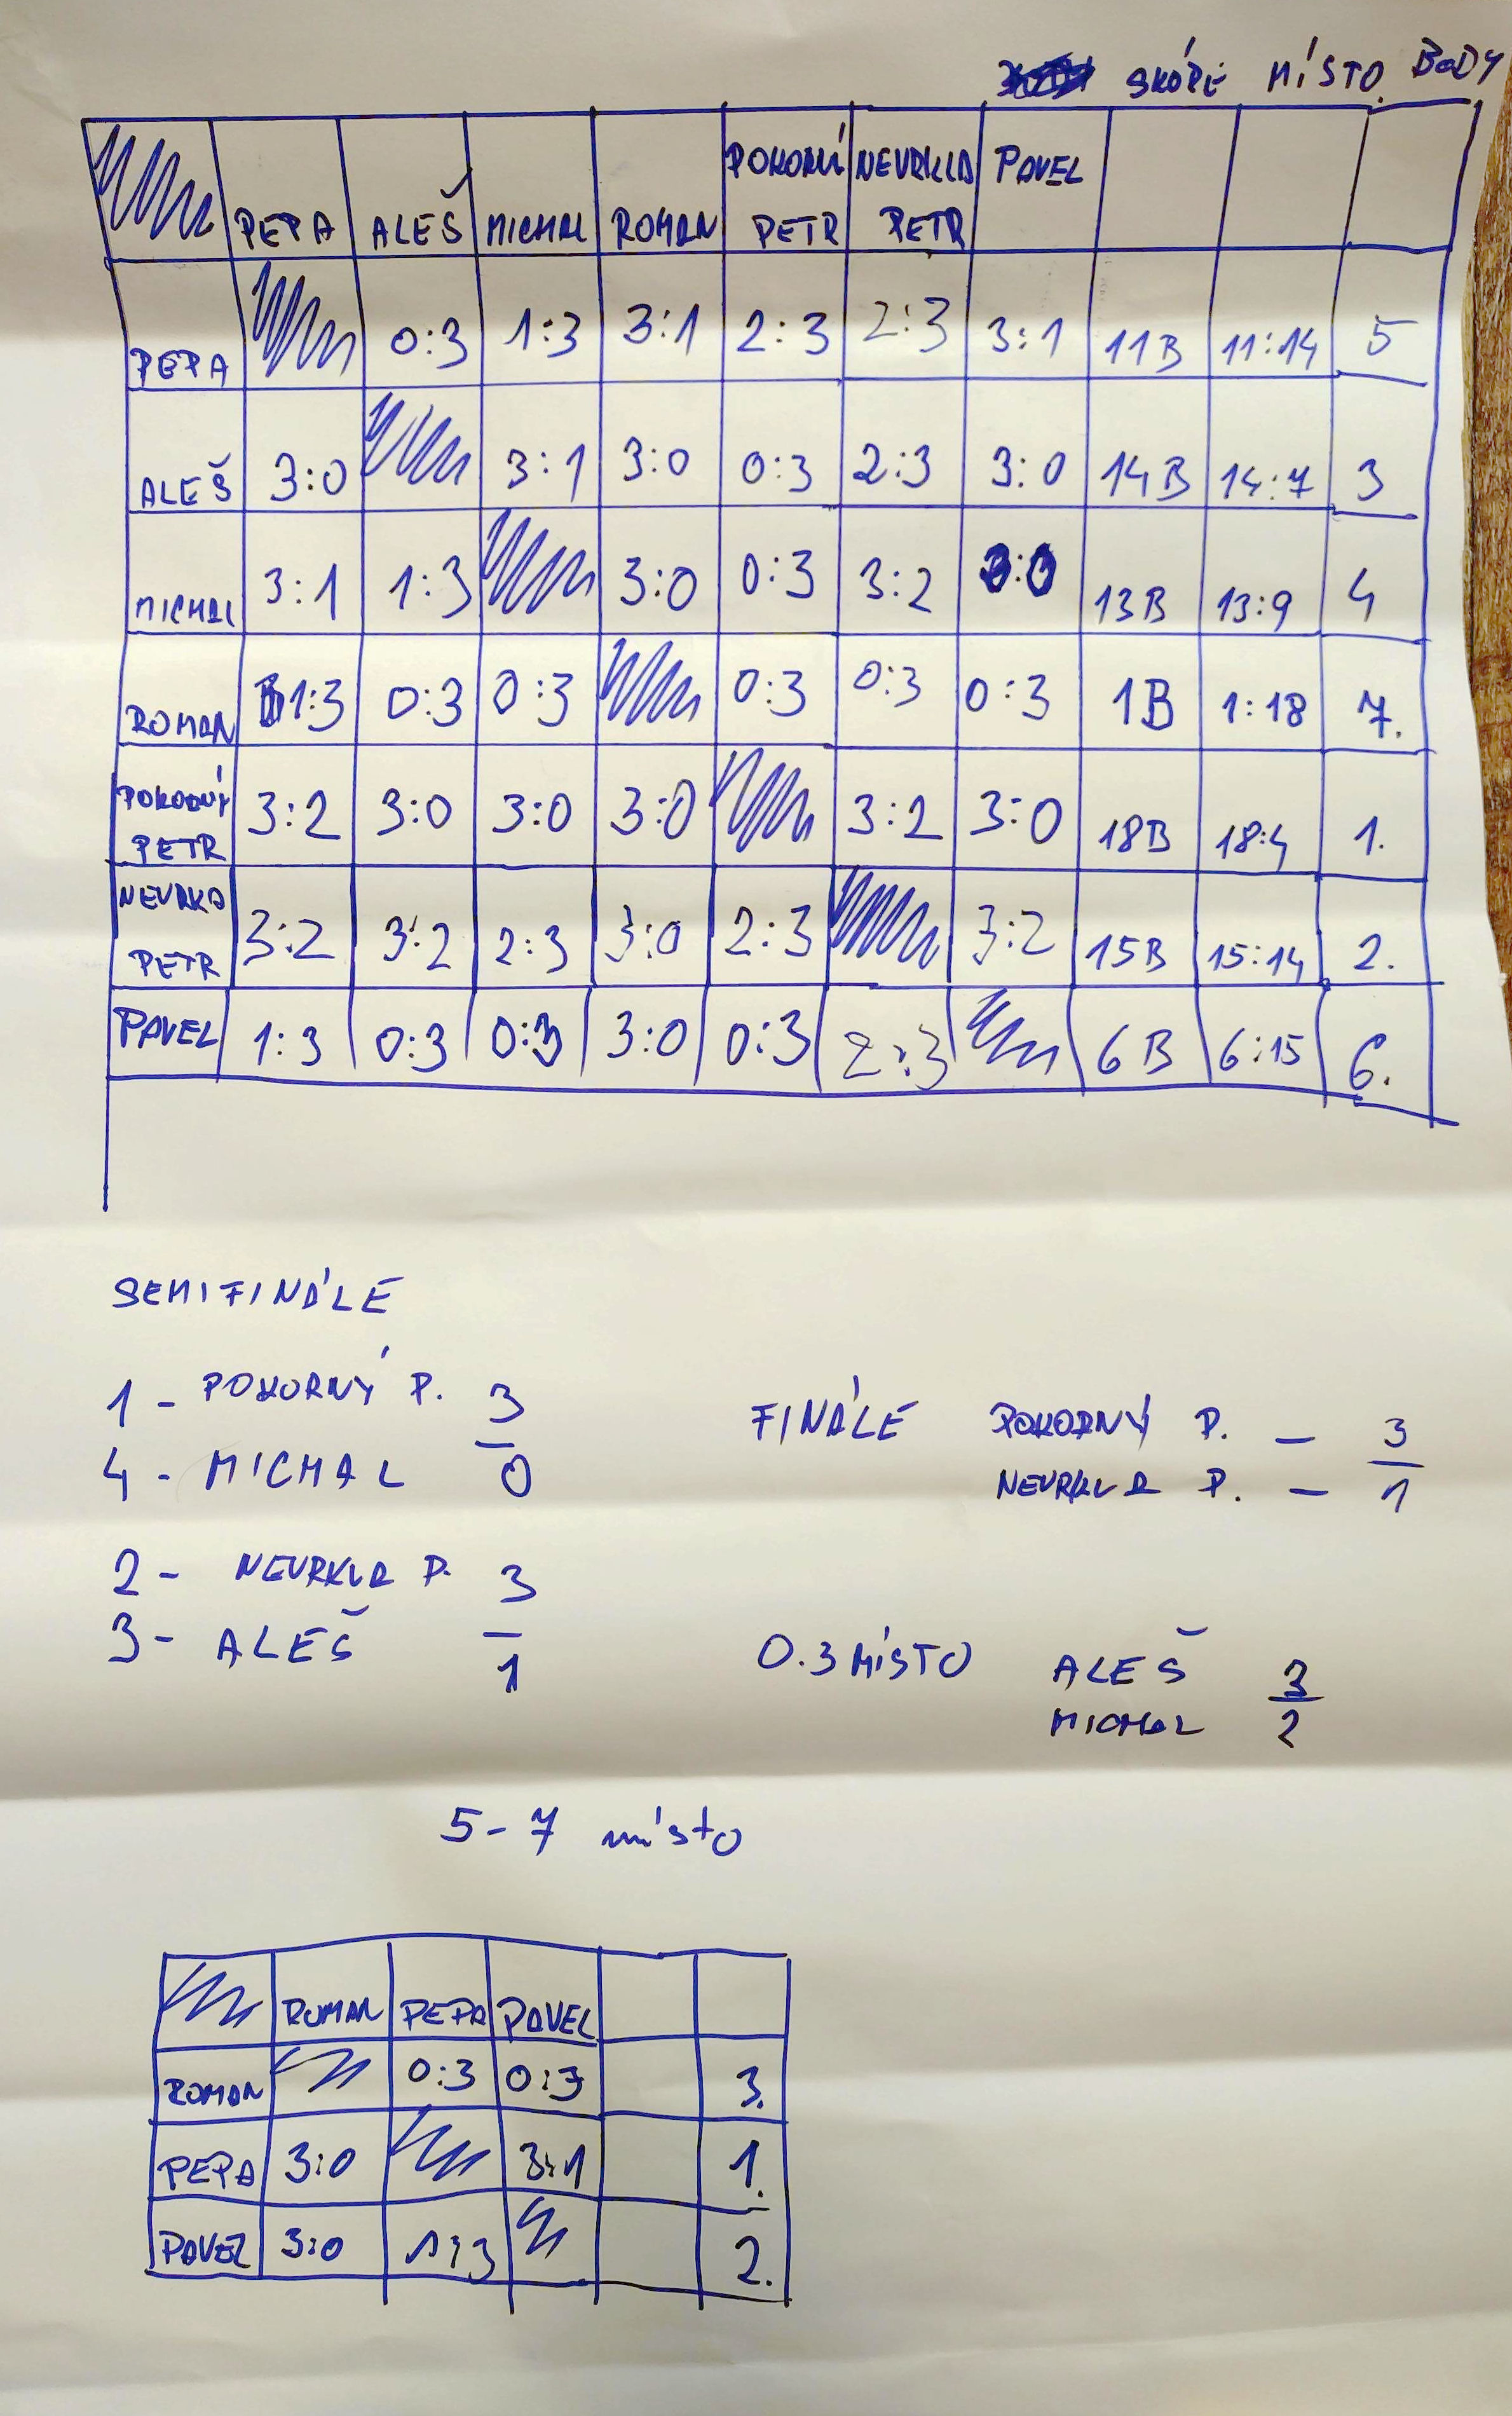 SKÓRE MÍSTO BODY
PEPA ALEŠ MICHAL ROMAN POKORNÍ PETR NEVRKLA PETR PAVEL
PEPA 0:3 1:3 3:1 2:3 2:3 3:1 11B 11:14 5
ALEŠ 3:0 3:1 3:0 0:3 2:3 3:0 14B 14:7 3
MICHAL 3:1 1:3 3:0 0:3 3:2 3:0 13B 13:9 4
ROMAN 1:3 0:3 0:3 0:3 0:3 0:3 1B 1:18 7.
POKORNÝ PETR 3:2 3:0 3:0 3:0 3:2 3:0 18B 18:4 1.
NEVRKA PETR 3:2 3:2 2:3 3:0 2:3 3:2 15B 15:14 2.
PAVEL 1:3 0:3 0:3 3:0 0:3 2:3 6B 6:15 6.
SEMIFINÁLE
1 - POKORNÝ P. 3
4 - MICHAL 0
2 - NEVRKLA P. 3
3 - ALEŠ 1
FINÁLE POKORNÝ P. - 3
NEVRKLA P. - 1
O.3 MÍSTO ALEŠ 3
MICHAL 2
5-7 místo
ROMAN PEPA PAVEL
ROMAN 0:3 0:3 3.
PEPA 3:0 3:1 1.
PAVEL 3:0 1:3 2.